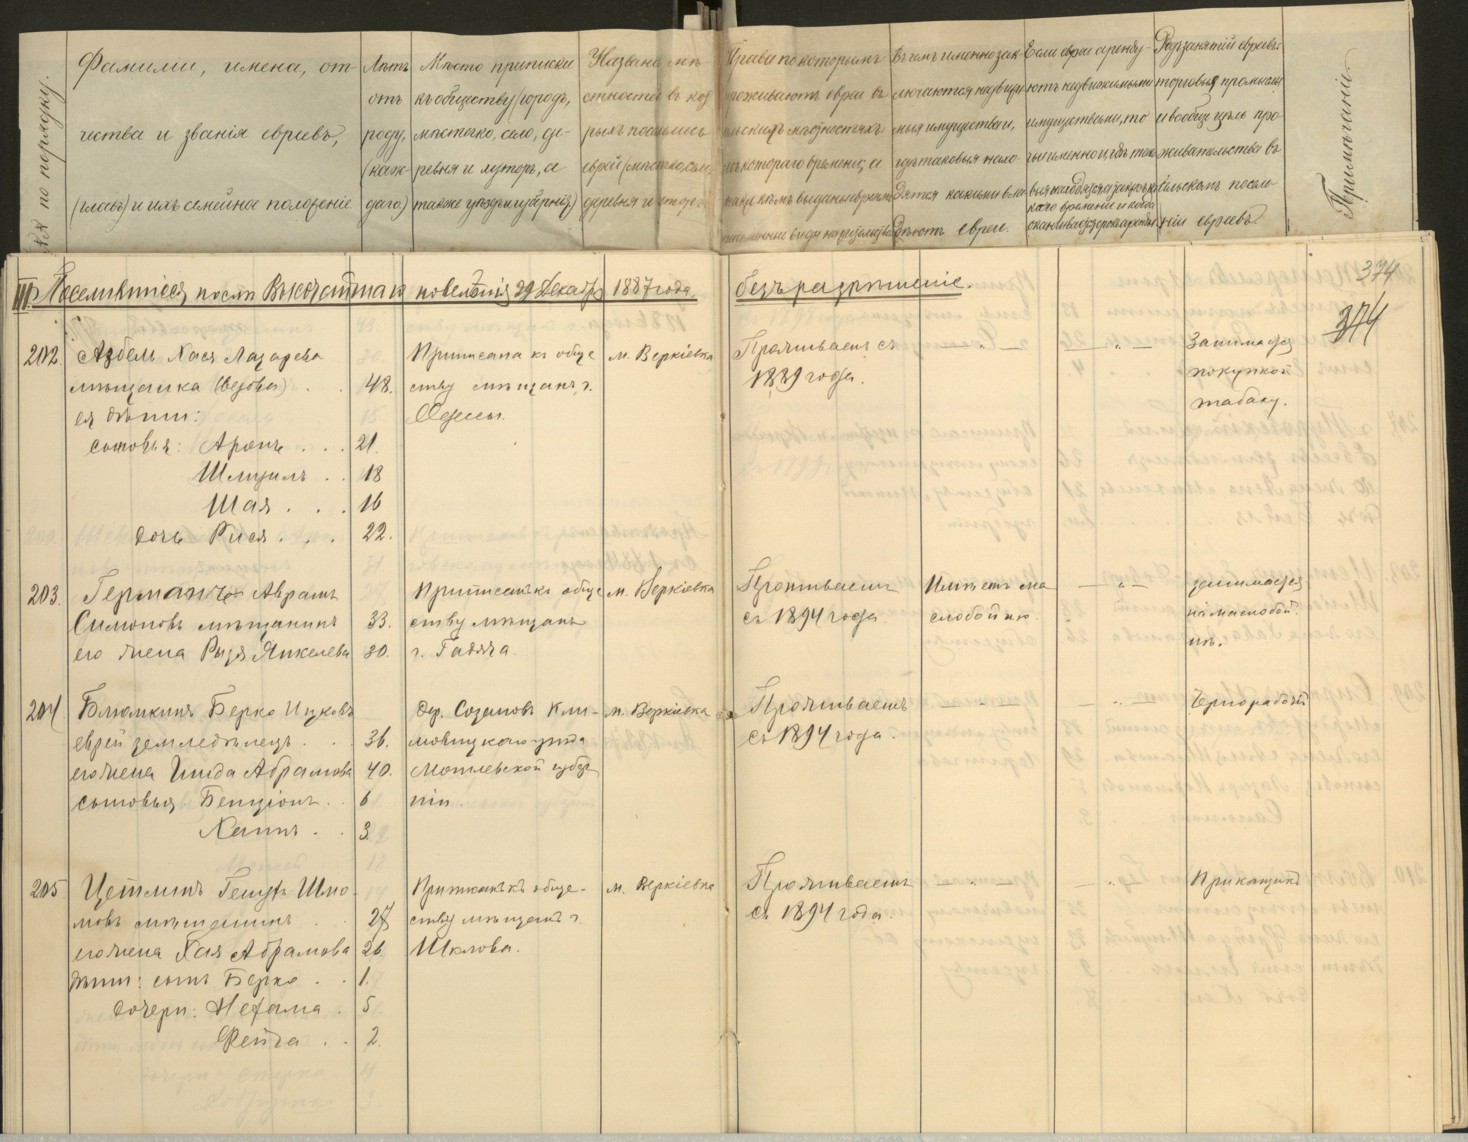 №№ по порядку.
Фамилии, имена, от-
чества и званія евреевъ,
(главы) и ихъ семейное положеніе
Лѣтъ
отъ
роду,
(каж-
даго)
Мѣсто приписки
къ обществу (городъ,
мѣстечко, село, де-
ревня и хуторъ, а
также уѣздъ и губернія)
Названіе мѣ-
стностей въ кот
рыхъ поселились
евреи (мѣстечко, село,
деревня и хуторъ
Права по которымъ
проживаютъ евреи въ
сельскихъ мѣстностяхъ
съ котораго времени, а
также кѣмъ выданы евреямъ
письменные виды на
Въ чемъ именно зак
лючаются недвижи
мыя имущества и,
гдѣ таковыя нахо
дятся какими вла
дѣютъ евреи.
Если евреи аренду-
ютъ недвижимыми
имуществами, то
какими именно и гдѣ
кого времени и когда
оканчивается срокъ аренды
Родъ занятій евреевъ
торговля промыслы
и вообще цѣль про-
живательства въ
сельскомъ поселе-
ніи евреевъ.
Примѣчаніе.
III. Поселившіеся послѣ Высочайшаго повелѣнія 29 Декабря 1887 года, безъ разрѣшенія.
374
374
202. Азбель Хася Лазарева
мѣщанка (вдова) . . 48.
ея дѣти:
сыновья: Аронъ . . . 21.
Шлиумъ . . 18
Шая . . . 16
дочь Рися . . . 22.
Приписана къ обще
ству мѣщанъ г.
Одессы.
м. Веркіевка
Проживаетъ съ
1889 года.
— „ —
Занимается
покупкой
табаку.
203. Германъ Аврамъ
Симоновъ мѣщанинъ 33.
его жена Рыся Янкелева 30.
Приписанъ къ обще
ству мѣщанъ
г. Гадяча.
м. Веркіевка
Проживаетъ
съ 1894 года.
Имѣетъ ма
слобойню.
— „ —
занимается
на маслобой-
нѣ.
204 Блюмкинъ Берко Ицковъ
еврей земледѣлецъ . . . 36.
его жена Гинда Абрамова 40.
сыновья Бенціонъ . . 6
Хаимъ . . 3
дер. Созоновъ Кли-
мовицкаго уѣзда
Могилевской губер
ніи.
м. Веркіевка
Проживаетъ
съ 1894 года.
— „ —
— „ —
Чернорабочій
205 Цетлинъ Генухъ Шмо-
мовъ мѣщанинъ . 27
его жена Хая Абрамова 26
дѣти: сынъ Берко . . 1.
дочери: Нехама . 5
Фейга . . 2.
Приписанъ къ обще-
ству мѣщанъ г.
Шклова.
м. Веркіевка
Проживаетъ
съ 1894 года.
— „ —
— „ —
Прикащикъ